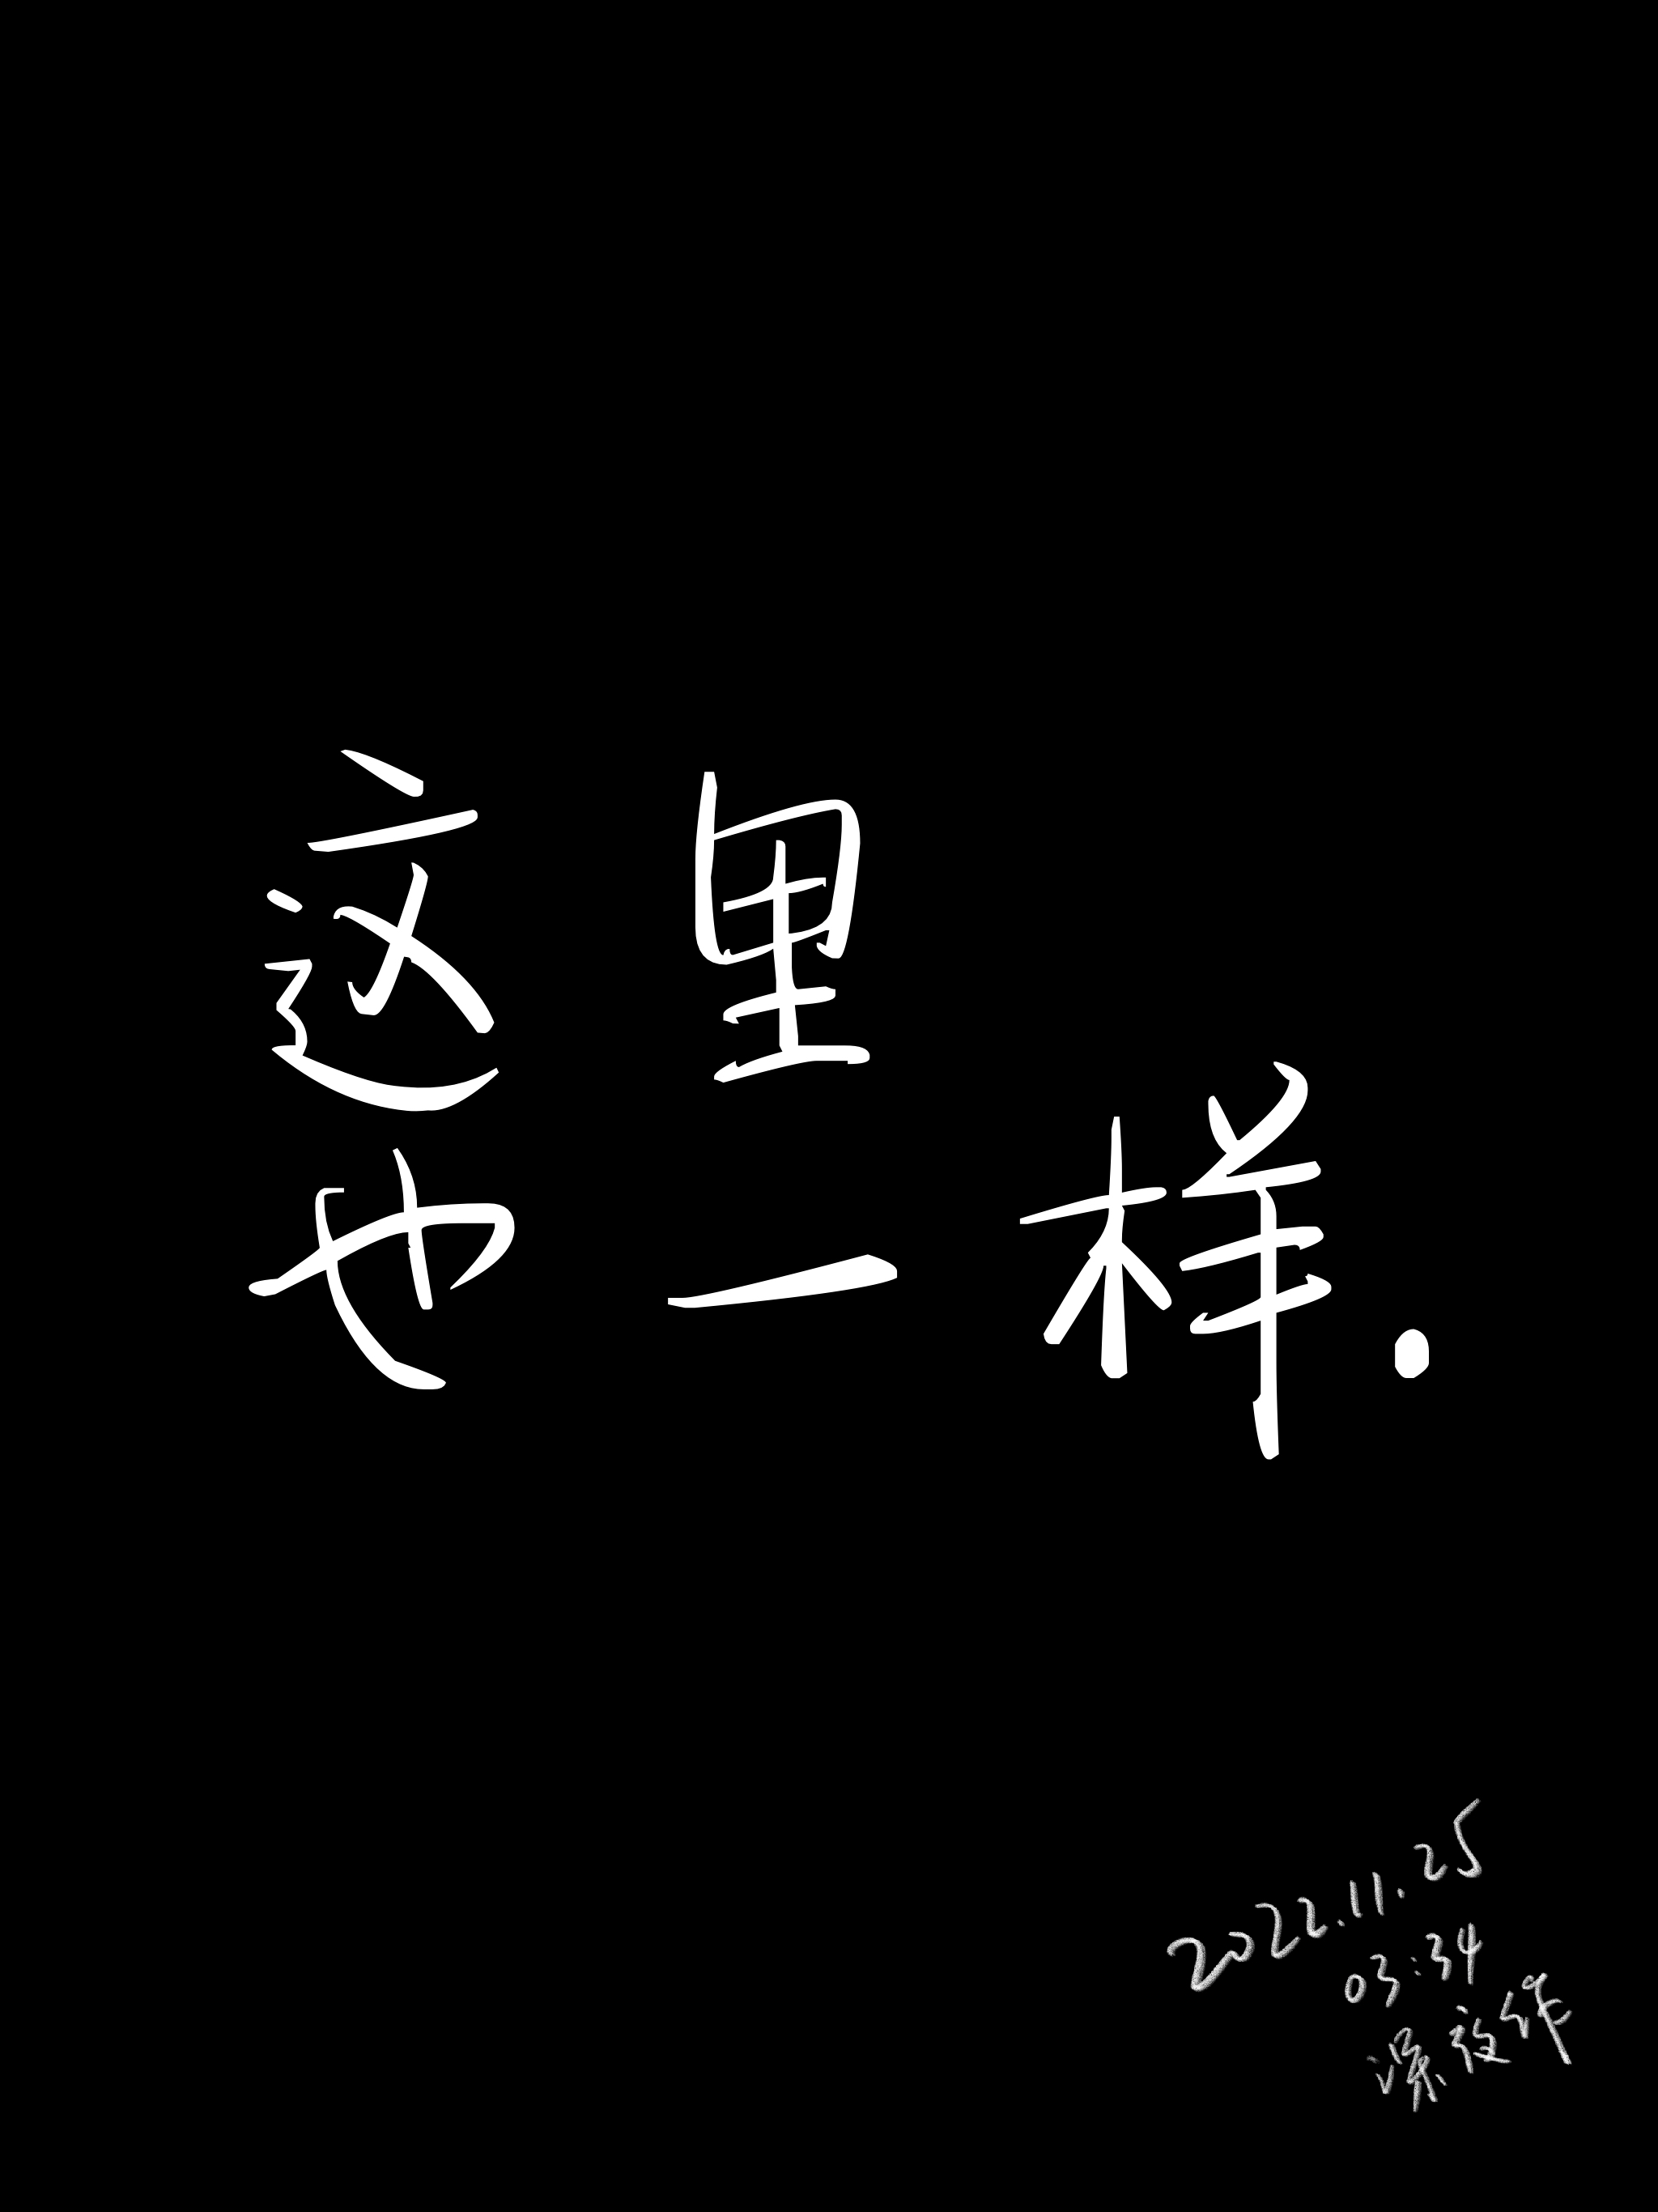 这里
也一样.
2022.11.25
03:34
深夜作